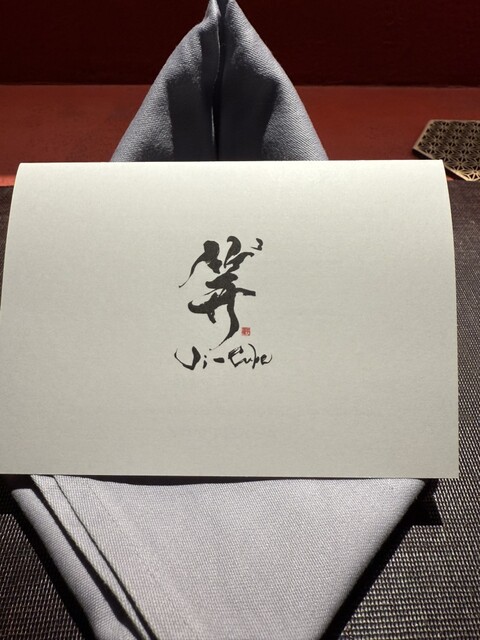 笄³
Ji-Cube